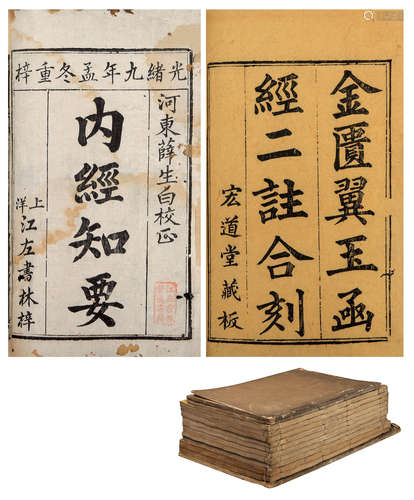 光緒九年孟冬重梓
河東薛生白校正
內經知要
上洋江左書林梓
金匱翼玉函
經二註合刻
宏道堂藏板